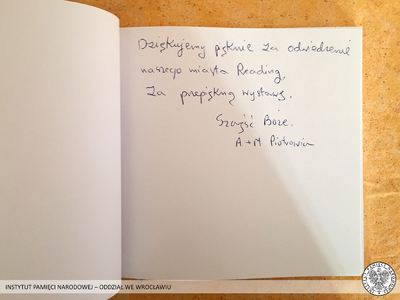 Dziękujemy pięknie za odwiedzenie
naszego miasta Reading,
za przepiękną wystawę.
Szczęść Boże.
A + M
INSTYTUT PAMIĘCI NARODOWEJ – ODDZIAŁ WE WROCŁAWIU